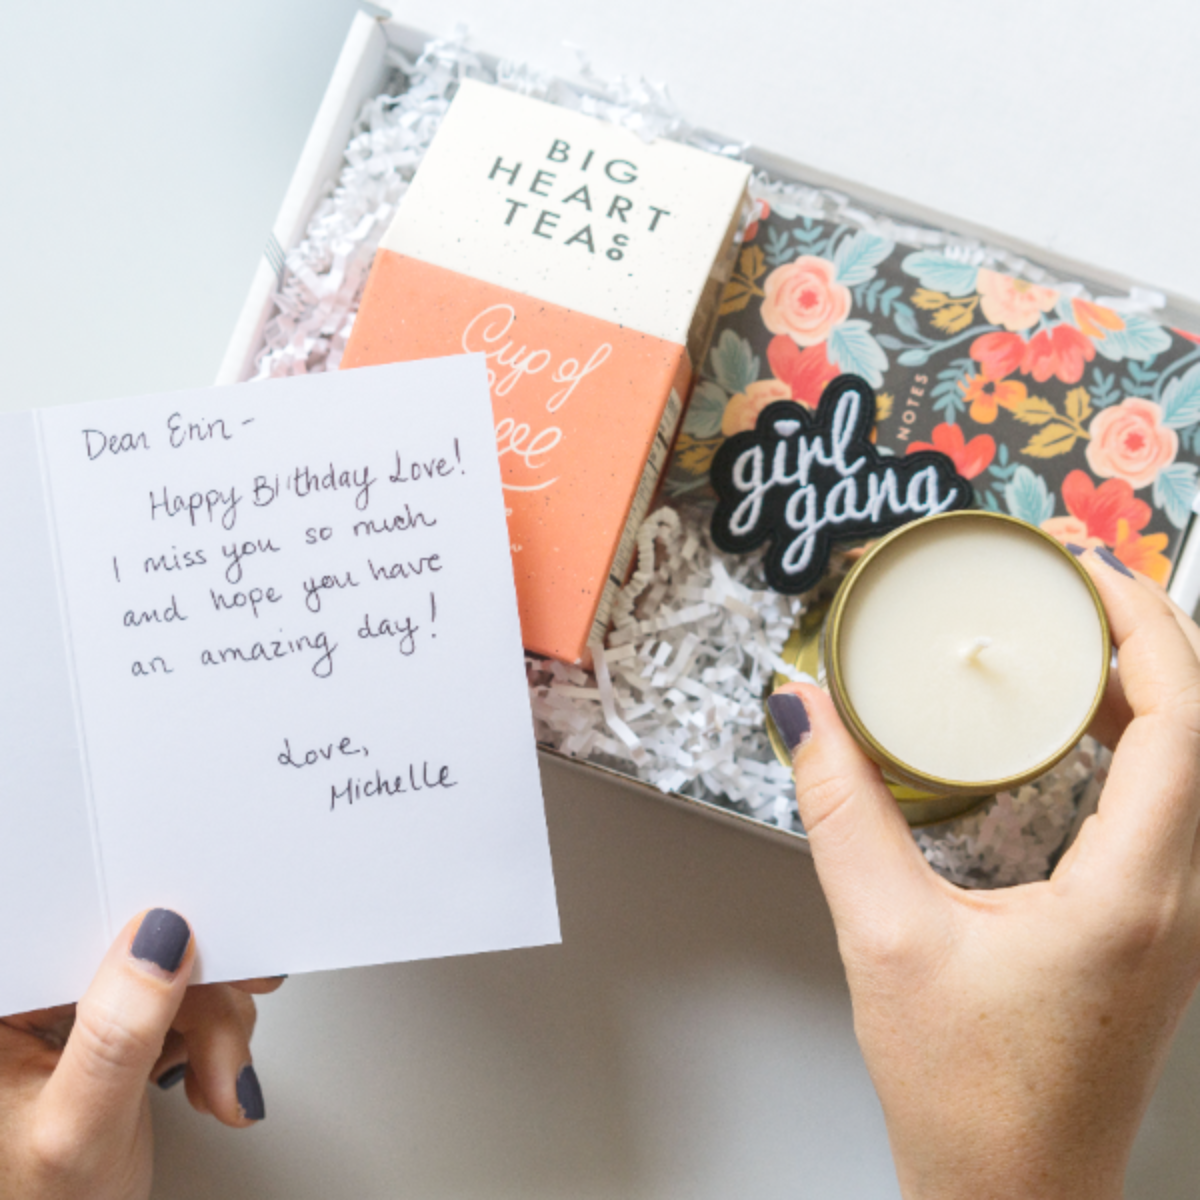 BIG
HEART
TEA CO
Cup of
NOTES
girl
gang
Dear Erin -
Happy Birthday Love!
I miss you so much
and hope you have
an amazing day!
Love,
Michelle